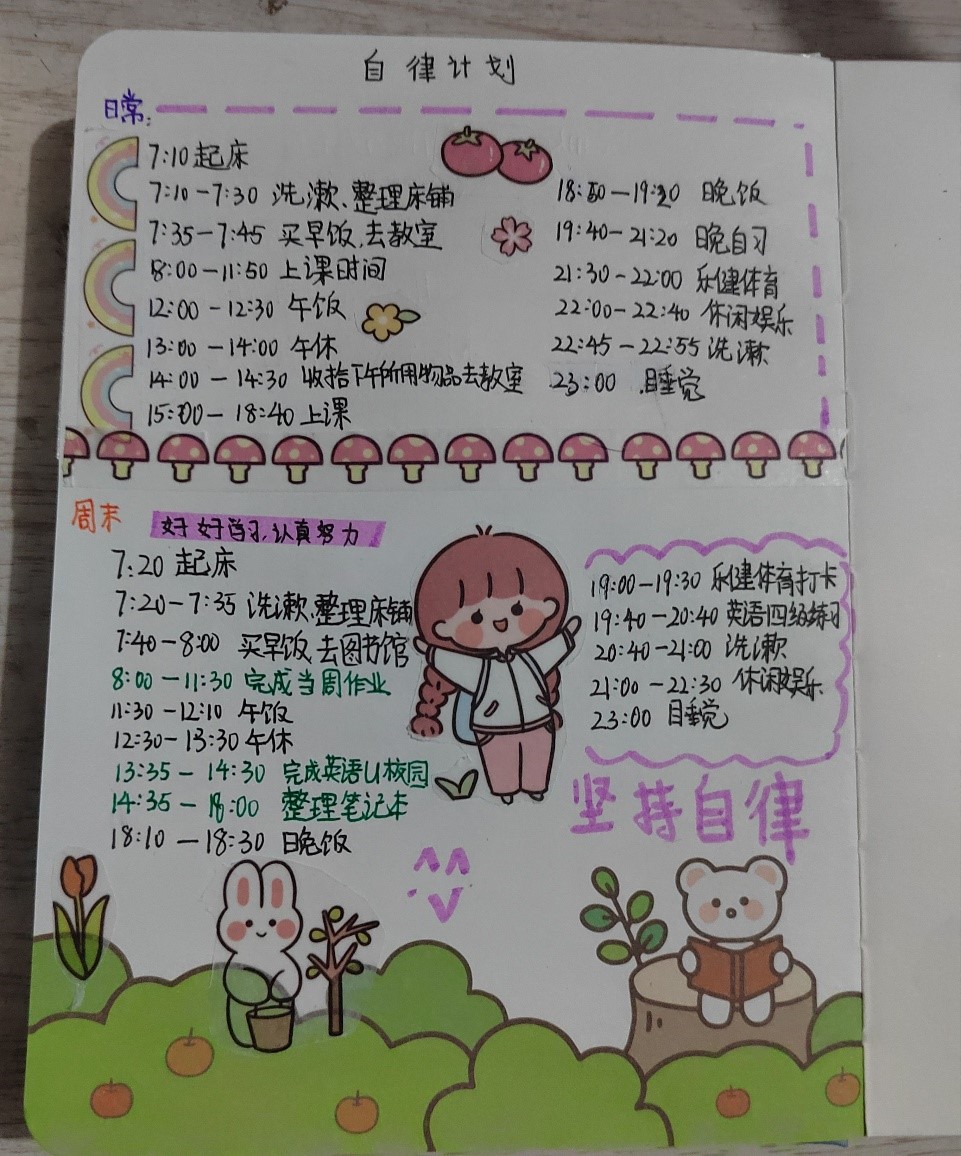 自律计划
日常:
7:10起床
7:10-7:30 洗漱、整理床铺
7:35-7:45 买早饭,去教室
8:00-11:50 上课时间
12:00-12:30 午饭
13:00-14:00 午休
14:00-14:30 收拾下午所用物品去教室
15:00-18:40 上课
18:50-19:30 晚饭
19:40-21:20 晚自习
21:30-22:00 乐健体育
22:00-22:40 休闲娱乐
22:45-22:55 洗漱
23:00 睡觉
周末
好好学习,认真努力
7:20 起床
7:20-7:35 洗漱、整理床铺
7:40-8:00 买早饭,去图书馆
8:00-11:30 完成当周作业
11:30-12:10 午饭
12:30-13:30 午休
13:35-14:30 完成英语U校园
14:35-18:00 整理笔记本
18:10-18:30 晚饭
19:00-19:30 乐健体育打卡
19:40-20:40 英语四级练习
20:40-21:00 洗漱
21:00-22:30 休闲娱乐
23:00 睡觉
坚持自律